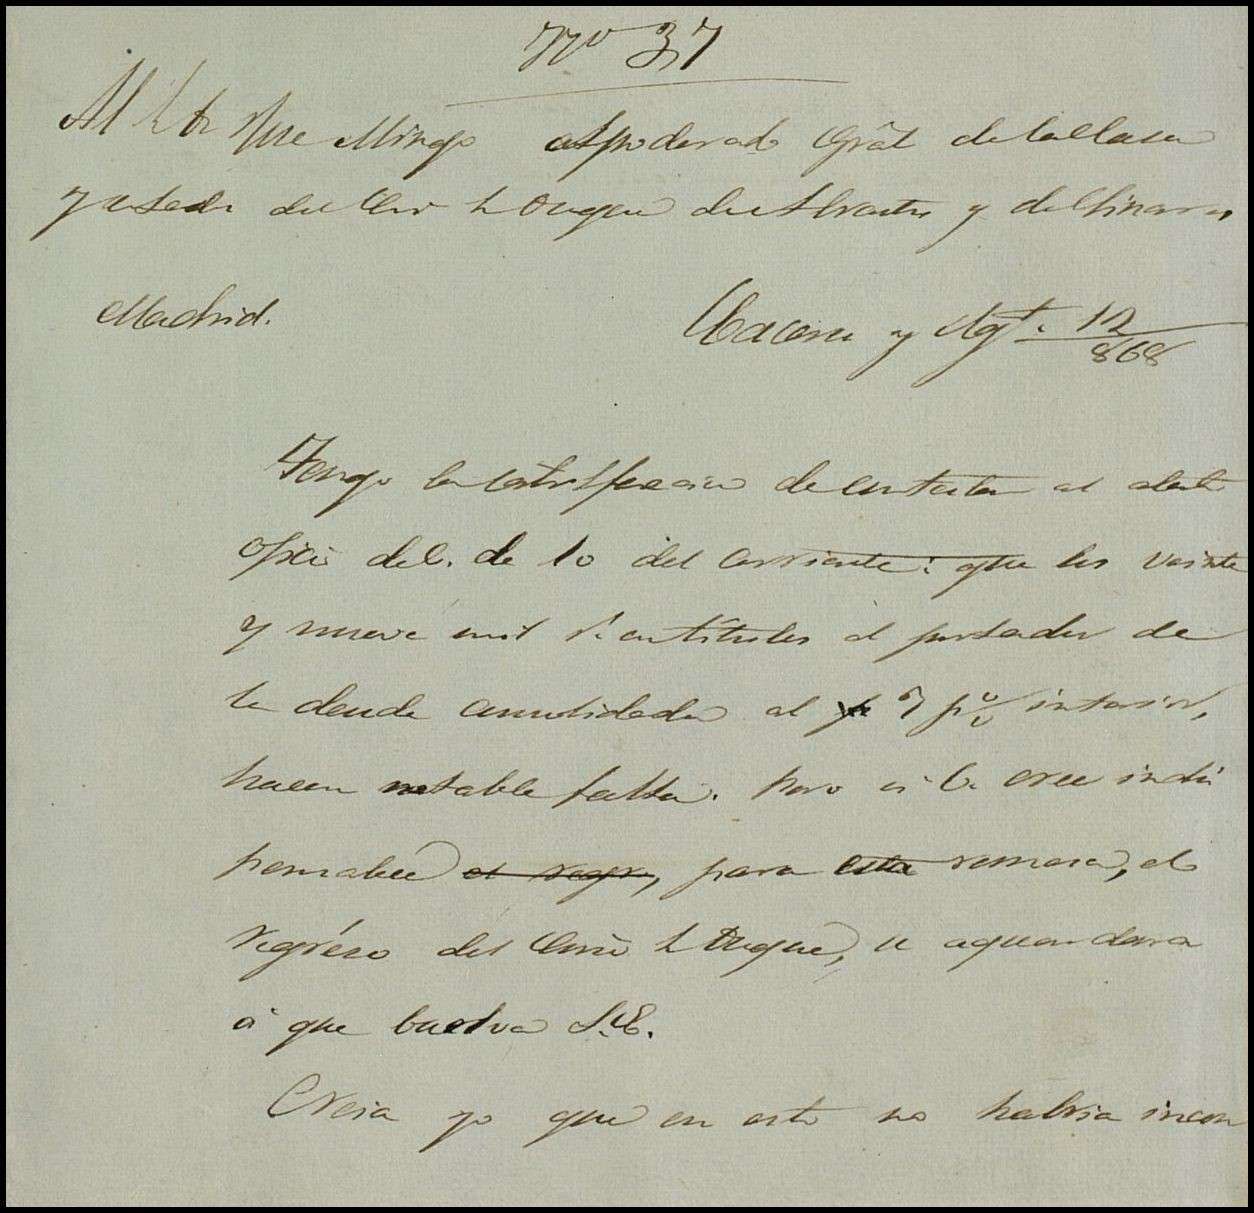 Nº 37
Al Sr Dn Jose Mingo apoderado Gral de la Casa
y estados del Exmo Sr Duque de Abrantes y de Linares
Madrid.
Cáceres y Agto. 12/868
Tengo la satisfaccion de contestar al atento
oficio de V. de 10 del corriente: que los veinte
y nueve mil rs. en titulos al portador de
la deuda consolidada al 3 p% interior,
hacen notable falta. Pero si V. cree indis
pensable el regre, para esta remesa, el
regréso del Exmo Sr Duque, se aguardara
á que buelva S.E.
Creia yo que en esto no habria incon